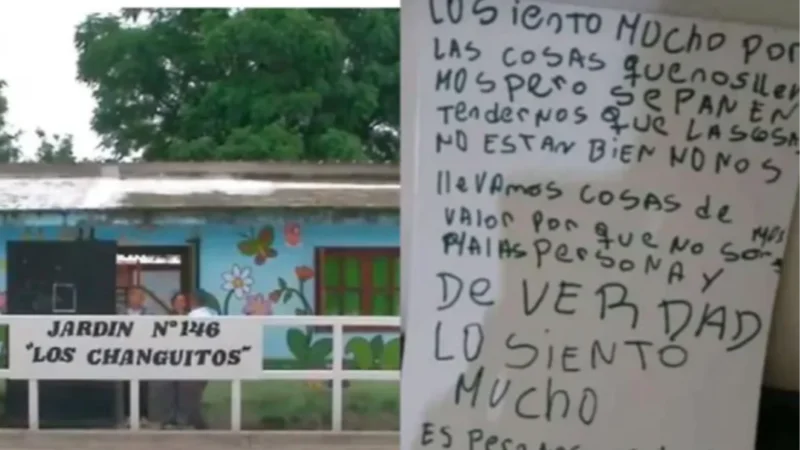 JARDIN N° 146
"LOS CHANGUITOS"
LO SIENTO MUCHO POR
LAS COSAS QUE NOS LLEV
MOS PERO SEPAN EN
TENDERNOS QUE LAS COSA
NO ESTAN BIEN NO NOS
LLEVAMOS COSAS DE
VALOR POR QUE NO SOMOS
MALAS PERSONA Y
DE VERDAD
LO SIENTO
MUCHO